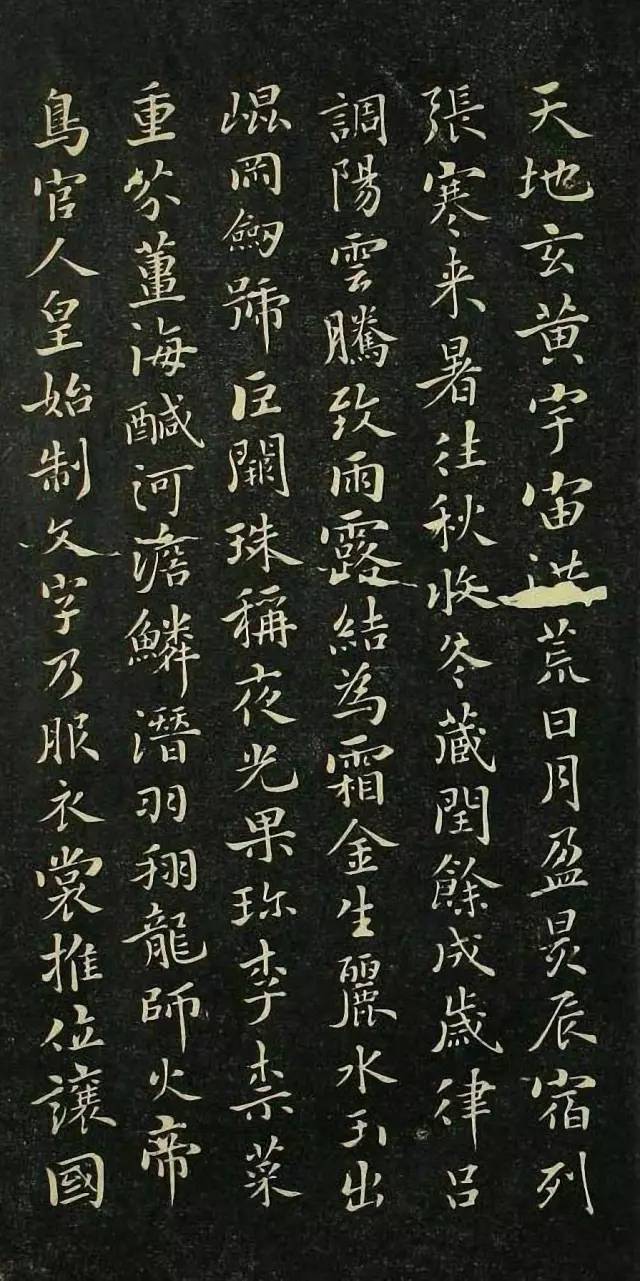 天地玄黃宇宙洪荒日月盈昃辰宿列
張寒来暑往秋收冬藏閏餘成歲律吕
調陽雲騰致雨露結為霜金生麗水玉出
崐岡劔號巨闕珠稱夜光果珎李柰菜
重芥薑海醎河澹鱗潛羽翔龍師火帝
鳥官人皇始制文字乃服衣裳推位讓國